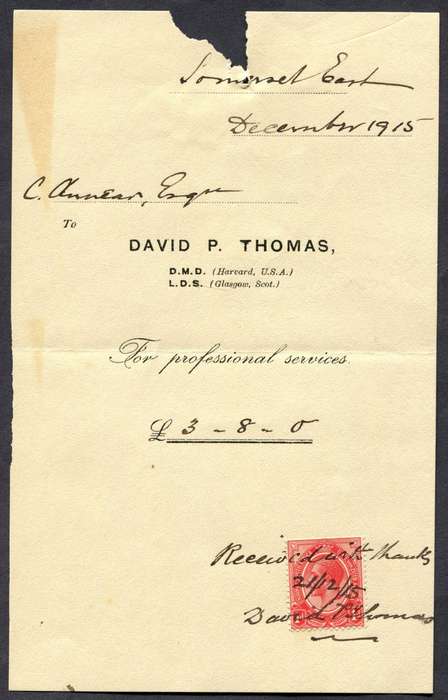 Somerset East
December 1915
C. Annear, Esqre
To
DAVID P. THOMAS,
D.M.D. (Harvard, U.S.A.)
L.D.S. (Glasgow, Scot.)
For professional services.
£ 3 - 8 - 0
Received with thanks
21/12/15
David P. Thomas